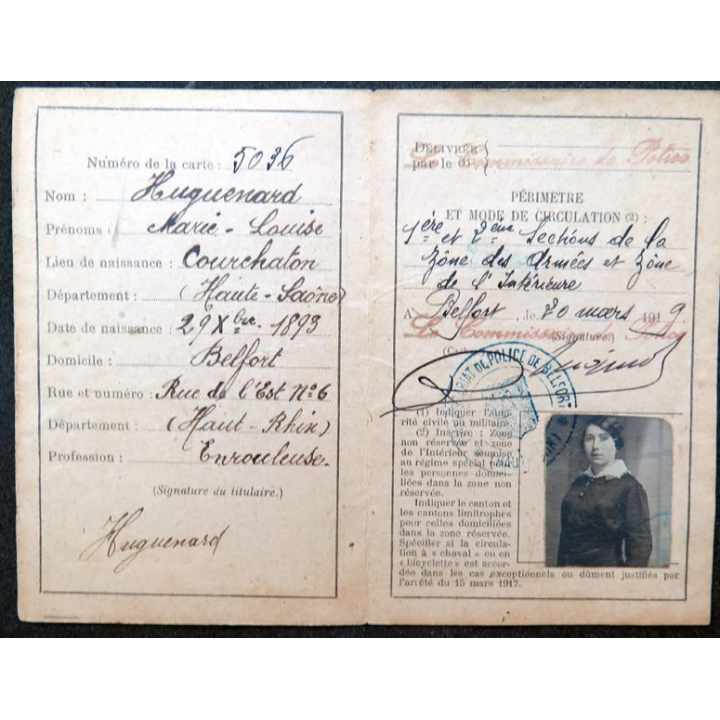 Numéro de la carte : 5036
Nom : Huguenard
Prénoms : Marie-Louise
Lieu de naissance : Courchaton
Département : (Haute-Saône)
Date de naissance : 29 Xbre 1893
Domicile : Belfort
Rue et numéro : Rue de l'Est N°6
Département : (Haut-Rhin)
Profession : Enrouleuse.
(Signature du titulaire.)
Huguenard
DÉLIVRÉE
par le (1)
Le Commissaire de Police
PÉRIMETRE
ET MODE DE CIRCULATION (2) :
1ère et 2ème Sections de la
Zône des Armées et Zône
de l'Intérieure
A Belfort, le 20 mars 1919
Le Commissaire de Police
(Signature.)
COMMISSARIAT DE POLICE DE BELFORT
(1) Indiquer l'auto-
rité civile ou militaire.
(2) Inscrire : Zone
non réservée et zone
de l'Intérieur soumise
au régime spécial pour
les personnes domici-
liées dans la zone non
réservée.
Indiquer le canton et
les cantons limitrophes
pour celles domiciliées
dans la zone réservée.
Spécifier si la circulation
à « cheval » ou en
« bicyclette » est accor-
dée dans les cas exceptionnels ou dûment justifiés par
l'arrêté du 15 mars 1917.